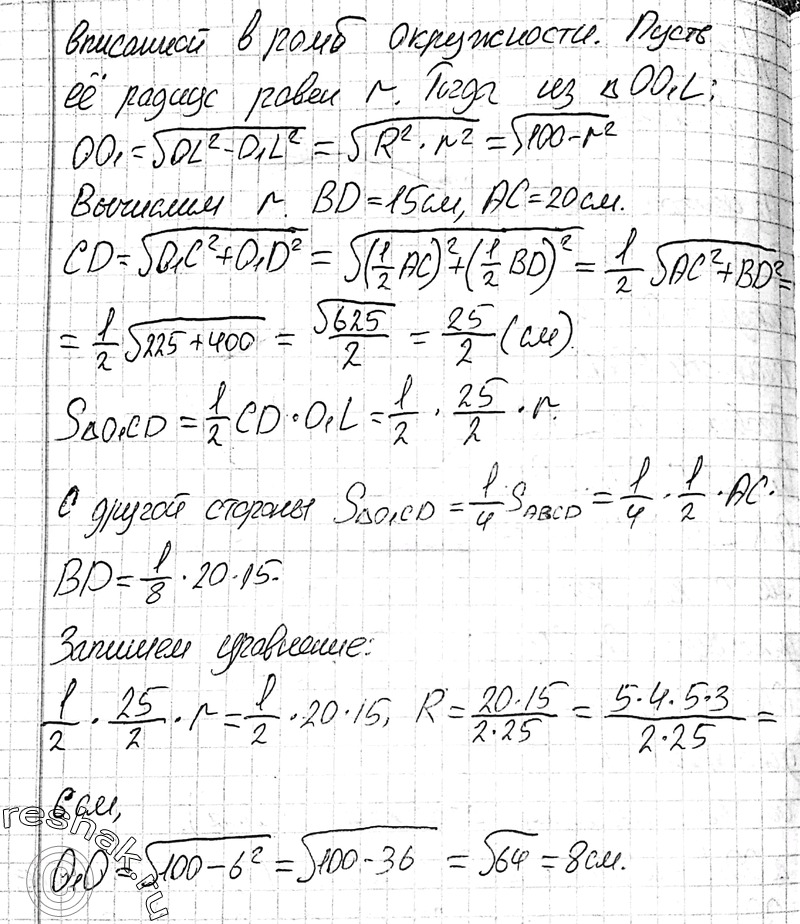 вписанной в ромб окружности. Пусть
её радиус равен r. Тогда из △OO₁L:
OO₁ = √(OL² - O₁L²) = √(R² · r²) = √(100 - r²)
Вычислим r. BD = 15см, AC = 20см.
CD = √(O₁C² + O₁D²) = √((1/2 AC)² + (1/2 BD)²) = 1/2 √(AC² + BD²) =
= 1/2 √(225 + 400) = √625/2 = 25/2 (см).
S△O₁CD = 1/2 CD · O₁L = 1/2 · 25/2 · r.
С другой стороны S△O₁CD = 1/4 S_ABCD = 1/4 · 1/2 · AC ·
BD = 1/8 · 20 · 15.
Запишем уравнение:
1/2 · 25/2 · r = 1/2 · 20 · 15, R = 20·15/2·25 = 5·4·5·3/2·25 =
6 см,
O₁O = √(100 - 6²) = √(100 - 36) = √64 = 8см.
reshak.ru